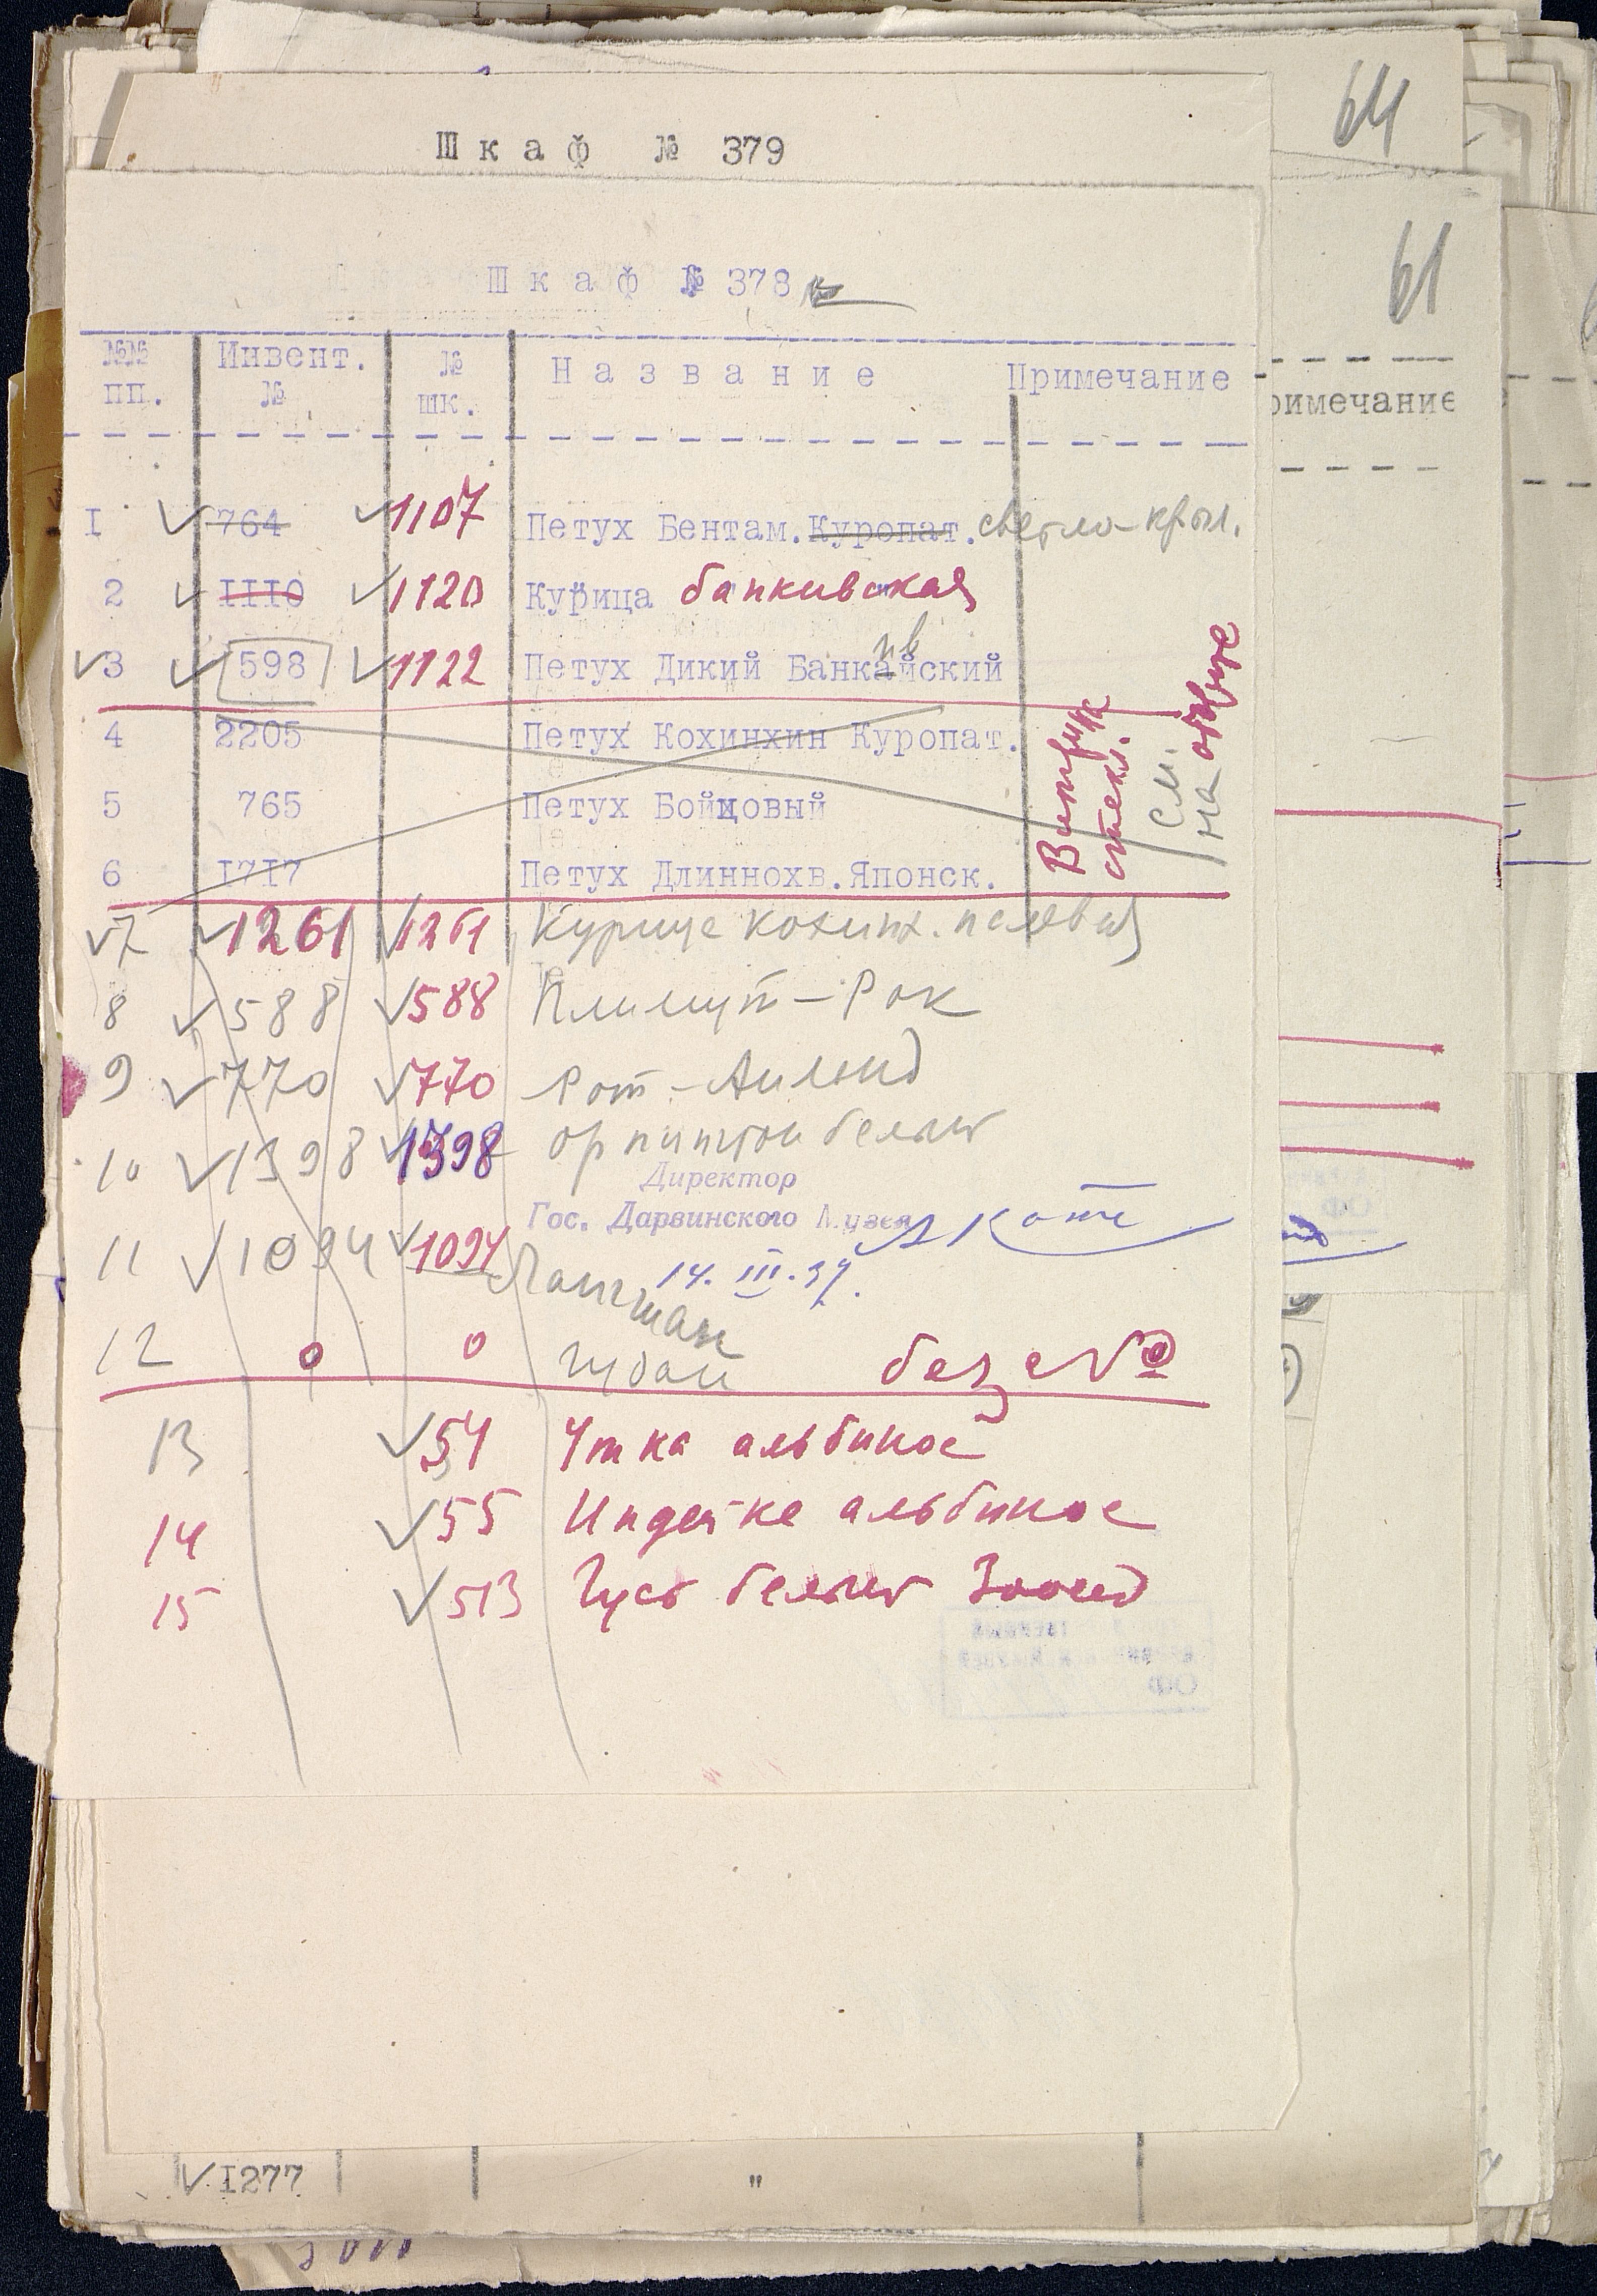 64
Шкаф № 379
61
Шкаф № 378
№№ пп. Инвент. № № шк. Название Примечание
римечание
I 764 1107 Петух Бентам. Куропат. светло-крыл.
2 III0 1120 Курица банкивская
3 598 1122 Петух Дикий Банкайский ив
4 2205 Петух Кохинхин Куропат.
5 765 Петух Бойцовый
6 I7I7 Петух Длиннохв. Японск.
см. на
7 1261 1261 Курица кохинх. палевая
8 588 588 Плимут-Рок
9 770 770 Рот-Айланд
10 1398 1398 Орпингтон белый
Директор
Гос. Дарвинского Музея
11 1094 1094 Лангшан
14. III. 37.
12 0 0 без №
13 54 Утка альбинос
14 55 Индейка альбинос
15 513 Гусь белый
ОФ
I277 "